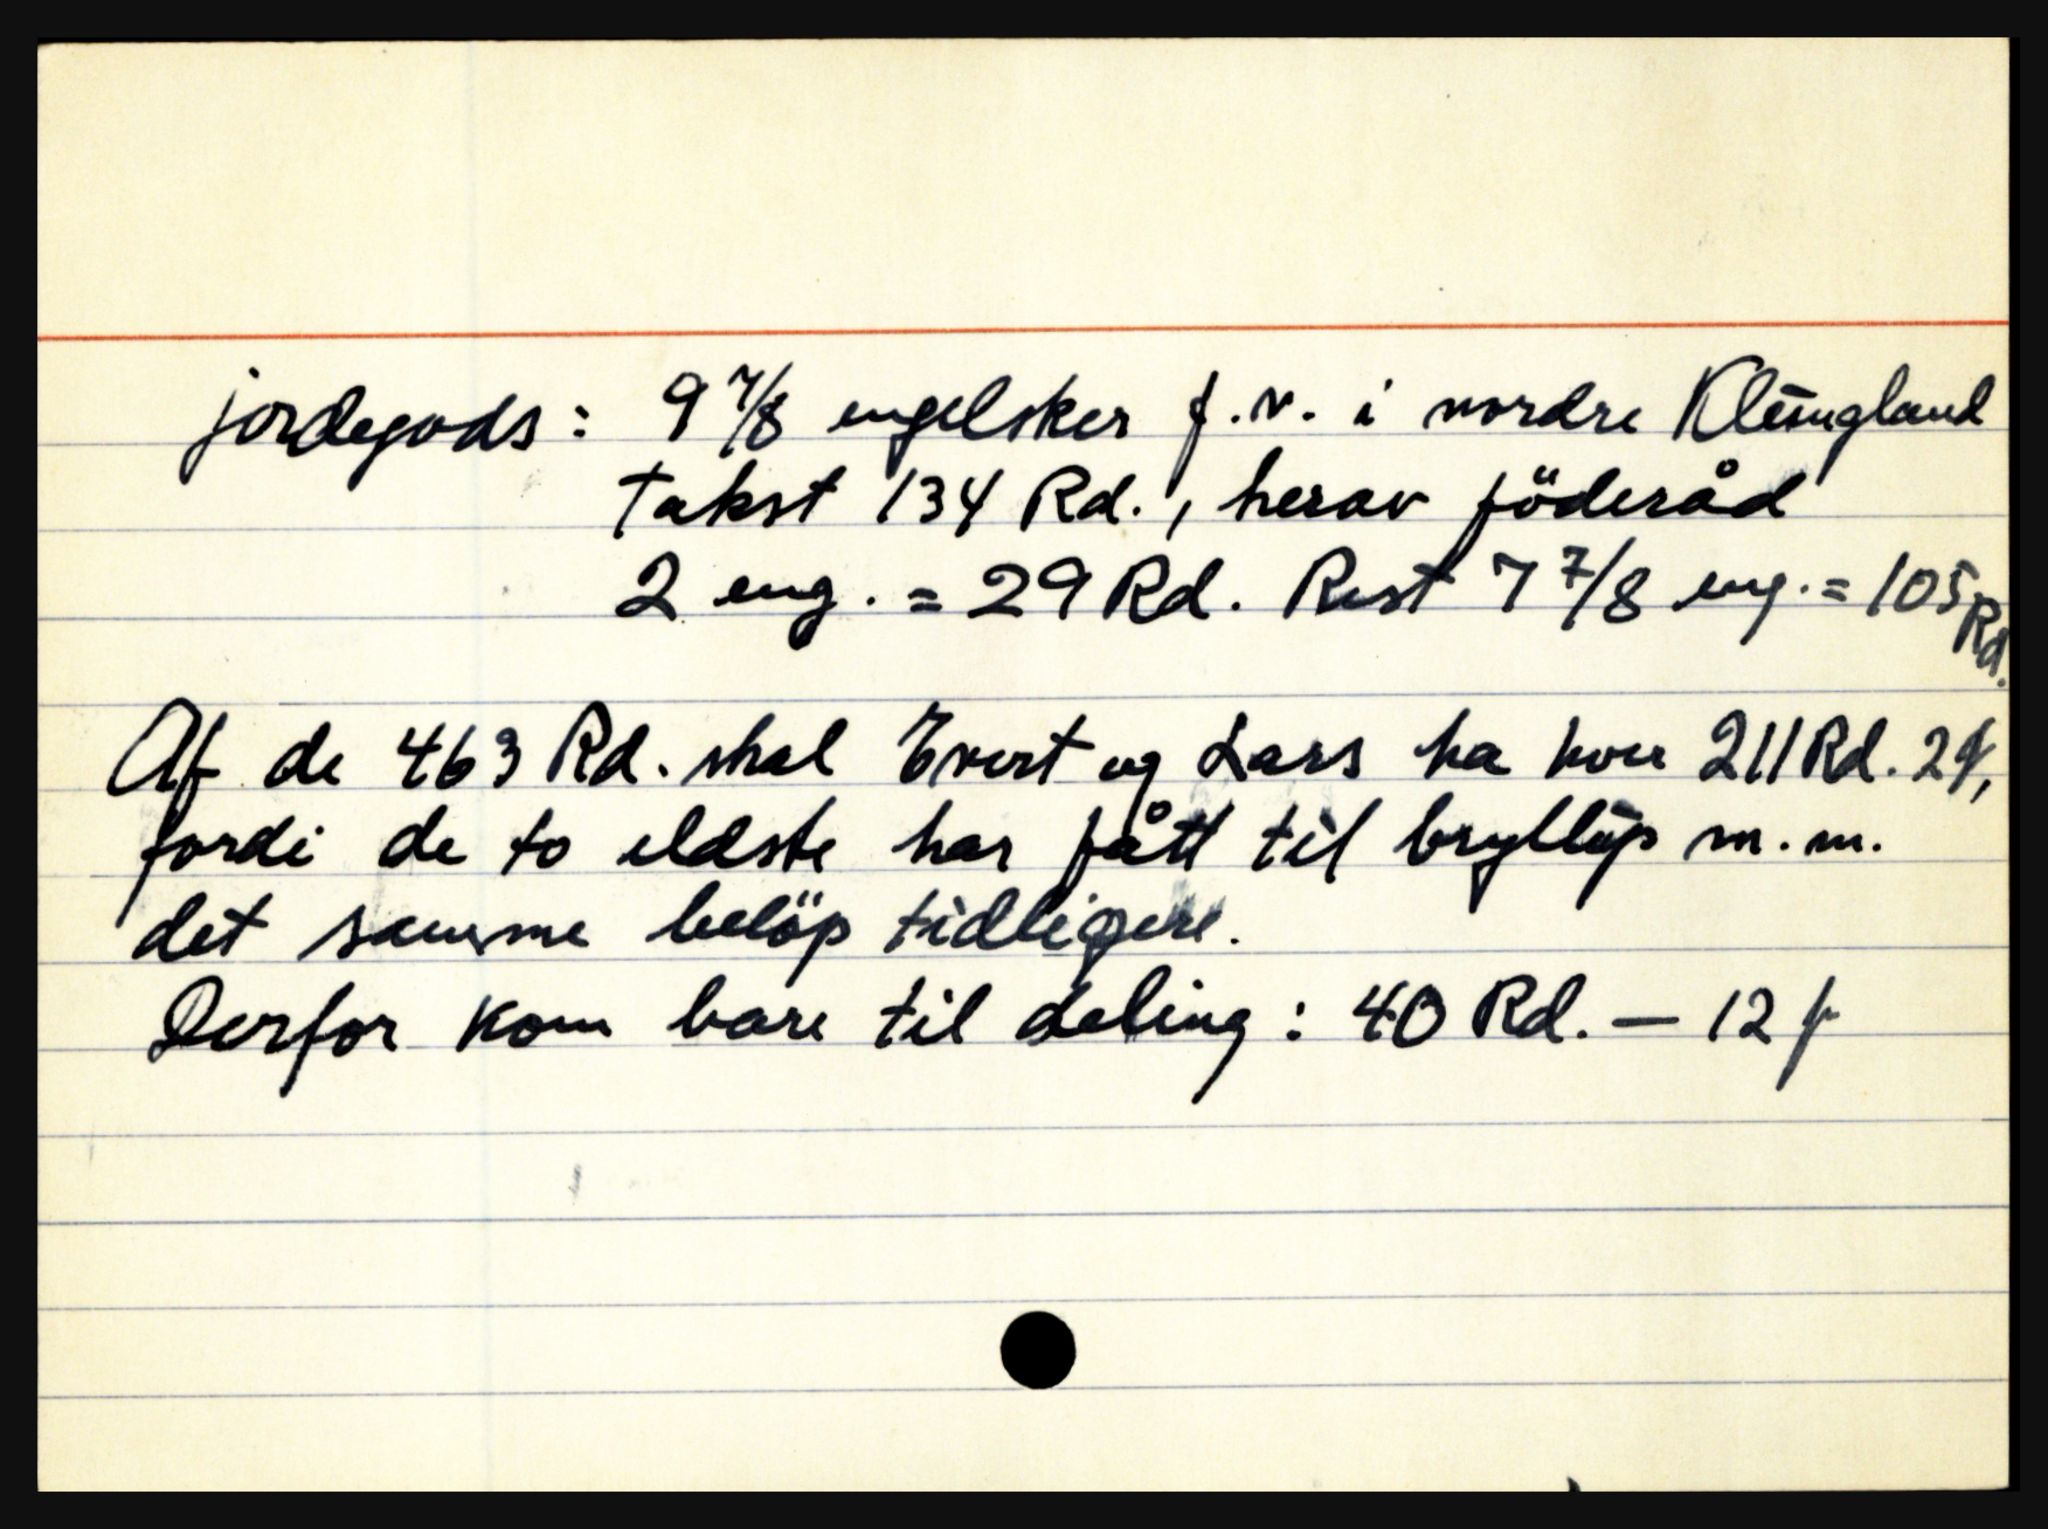 jordegods: 9 7/8 engelsker f.v. i nordre Kleungland
takst 134 Rd., herav föderåd
2 eng. = 29 Rd. Rest 7 7/8 eng. = 105 Rd.
Af de 463 Rd. skal Evert og Lars ha hver 211 Rd. 2
fordi de to eldste har fått til bryllup m.m.
det samme beløp tidligere.
Derfor kom bare til deling: 40 Rd. — 12